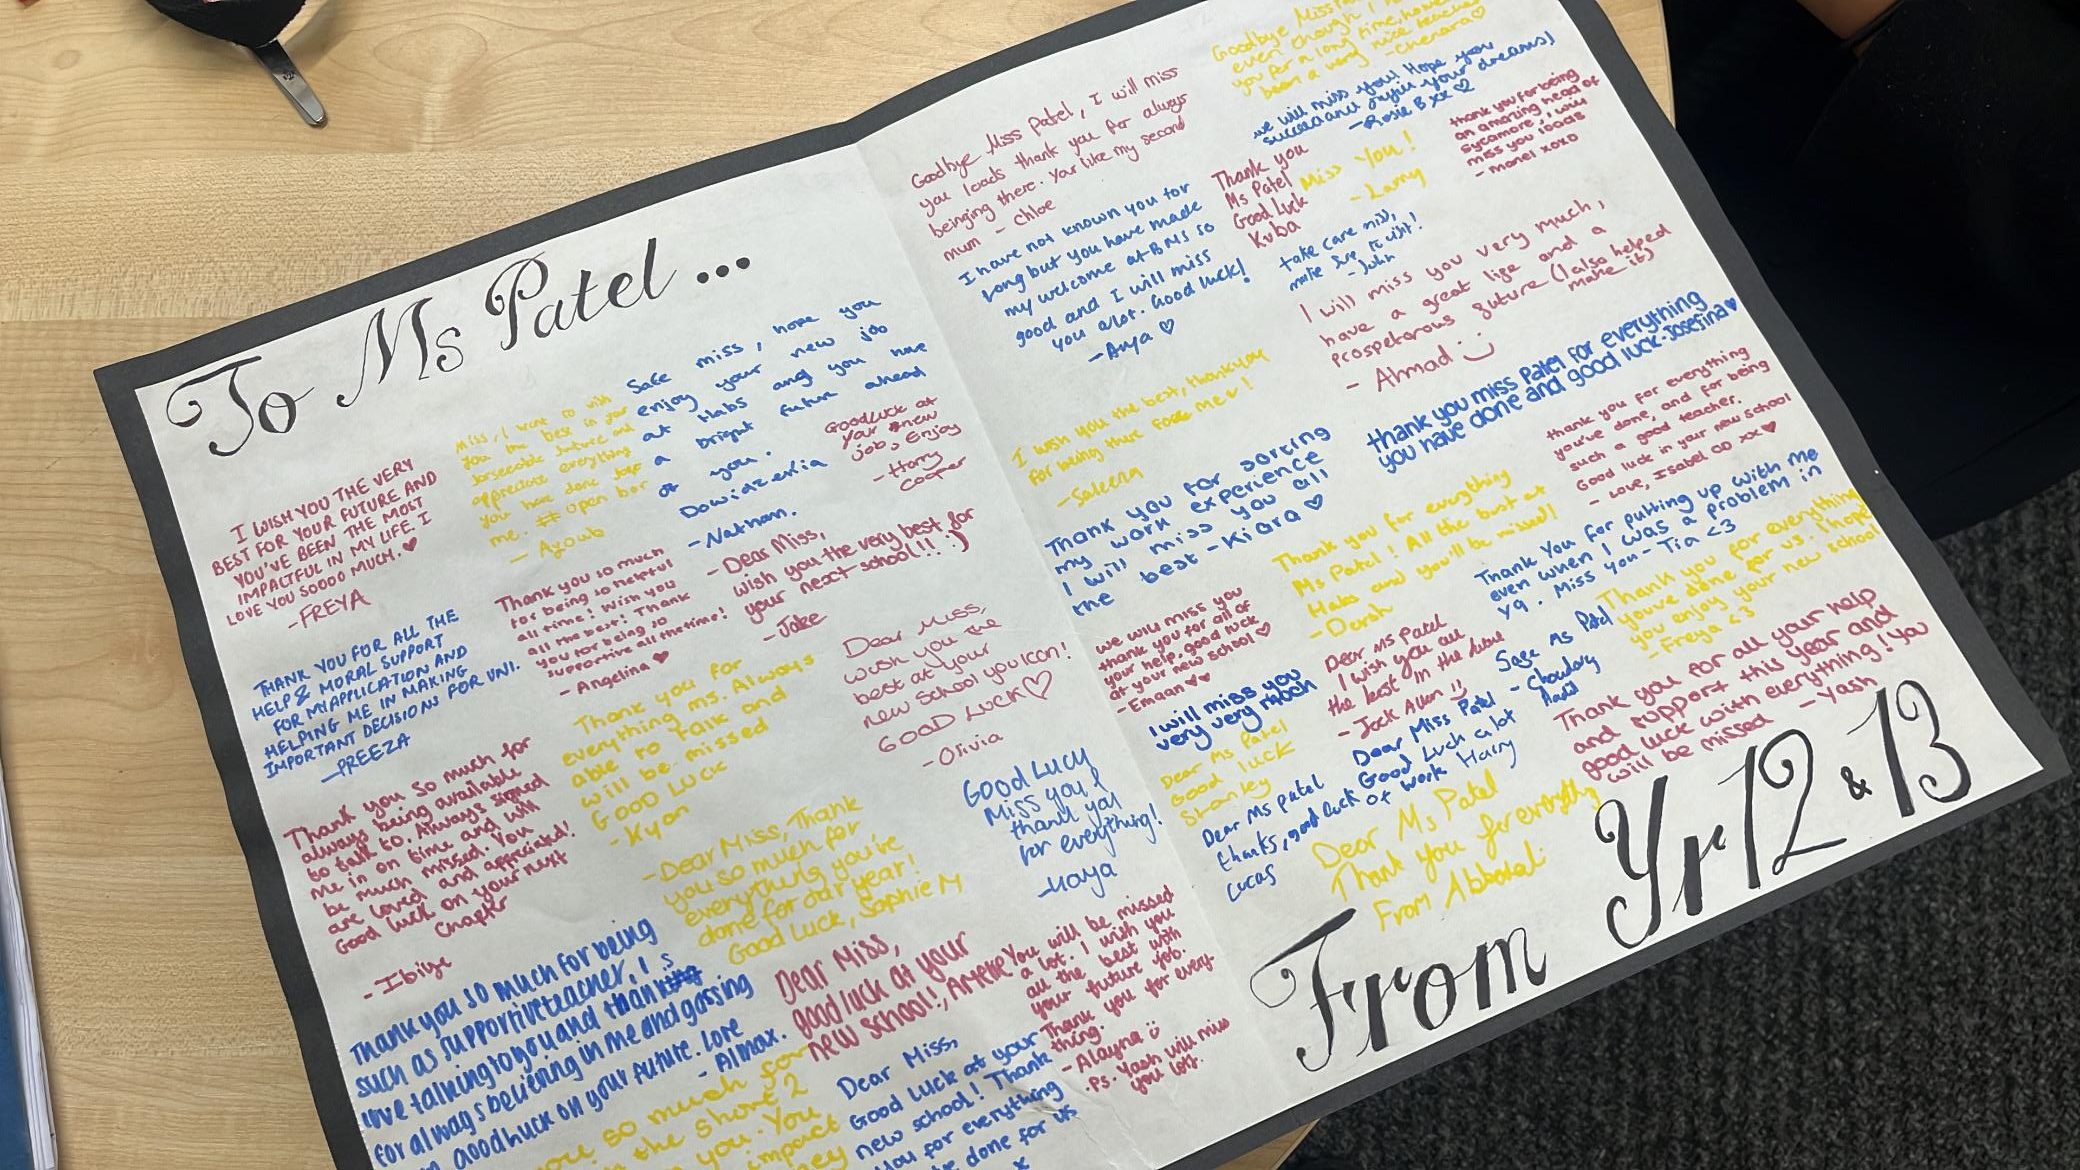 To Ms Patel...
I WISH YOU THE VERY
BEST FOR YOUR FUTURE AND
YOU'VE BEEN THE MOST
IMPACTFUL IN MY LIFE. I
LOVE YOU SOOOO MUCH.♥
-FREYA
THANK YOU FOR ALL THE
HELP & MORAL SUPPORT
FOR MY APPLICATION AND
HELPING ME IN MAKING
IMPORTANT DECISIONS FOR UNI.
-PREEZA
Thank you so much for
always being available
to talk to. Always signed
me in on time and will
be much missed. You
are loved and appreciated!
Good luck on your next
chapter
- Ibiye
Thank you so much for being
such as supportive teacher, I
love talking to you and thanks
for always believing in me and gassing
Good luck on your future. Love
- Almax.
Miss, I want to wish
you the best in your
forseeable future and
appreciate everything
you have done for
me. # open bar
- Ayoub
Safe miss, hope you
enjoy your new job
at Habs and you have
a bright future ahead
of you.
Dowidzenia
-Nathan.
Goodluck at
your new
job, Enjoy
- Harry
Cooper
Thank you so much
for being so helpful
all time! Wish you
all the best! Thank
you for being so
supportive all the time!
- Angelina ♥
- Dear Miss,
wish you the very best for
your next school!! :)
- Jake
Thank you for
everything ms. Always
able to talk and
will be missed
GOOD LUCK
- Kyan
Dear Miss,
wish you the
best at your
new school you icon!
GOOD LUCK♡
- Olivia
-Dear Miss, Thank
you so much for
everything you've
done for our year!
Good Luck, Sophie M
GOOD LUCY
Miss you &
thank you
for everything!
-Maya
Dear Miss,
good luck at your
new school!, Amelie
You will be missed
a lot. I wish you
all the best with
your future job.
Thank you for every-
thing.
- Alayna
.Ps. Yash will miss
you lots.
you so much for
in the short 2
you. You
impact
Dear Miss,
Good luck at your
new school! Thank
you for everything
done for us
x
Goodbye Miss Patel, I will miss
you loads thank you for always
beinging there. Your like my second
mum - Chloe
I have not known you for
long but you have made
my welcome at BMS so
good and I will miss
you alot. Good luck!
- Anya ♡
I wish you the best, thankyou
for being there for me ♥!
-Saleena
Thank you for sorting
my work experience
I will miss you all
the best - Kiara ♡
we will miss you
thank you for all of
your help. good luck
at your new school ♡
- Emaan ♥♥
I will miss you
very very much
Dear Ms Patel
Good luck
Stanley
Dear Ms Patel
thanks, good luck
Lucas
Goodbye Miss
even though I
you for a long time, however
been a very nice teacher
- Chenar♡
we will miss you! Hope you
succeed and fufill your dreams)
- Rosie B xx ♡
thank you for being
an amazing head of
Sycamore, i will
miss you loads
- monei xoxo
Thank you
Ms Patel
Good Luck
Kuba
Miss You!
- Larry
take care miss,
make sure to visit!
- John
I will miss you very much,
have a great life and a
prosperous future (I also helped
make it)
- Ahmad :)
thank you miss patel for everything
you have done and good luck-Josefina♥
thank you for everything
you've done, and for being
such a good teacher.
Good luck in your new school
- Love, Isabel OO xx ♥
Thank you for everything
Ms Patel! All the best at
Habs and you'll be missed!
- Darsh
Thank You for putting up with me
even when I was a problem in
y9. Miss you - Tia <3
Thank you for everything
you've done for us. I hope
you enjoy your new school
- Freya <3
Dear Ms Patel
I wish you all
the best in the future
- Jack Allan !!
Safe Ms Patel
- Chowdary
Dear Miss Patel
Good Luck a lot
of work Harry
Thank you for all your help
and support this year and
good luck with everything! You
will be missed - Yash
Dear Ms Patel
Thank you for everything
From
From Yr 12 & 13